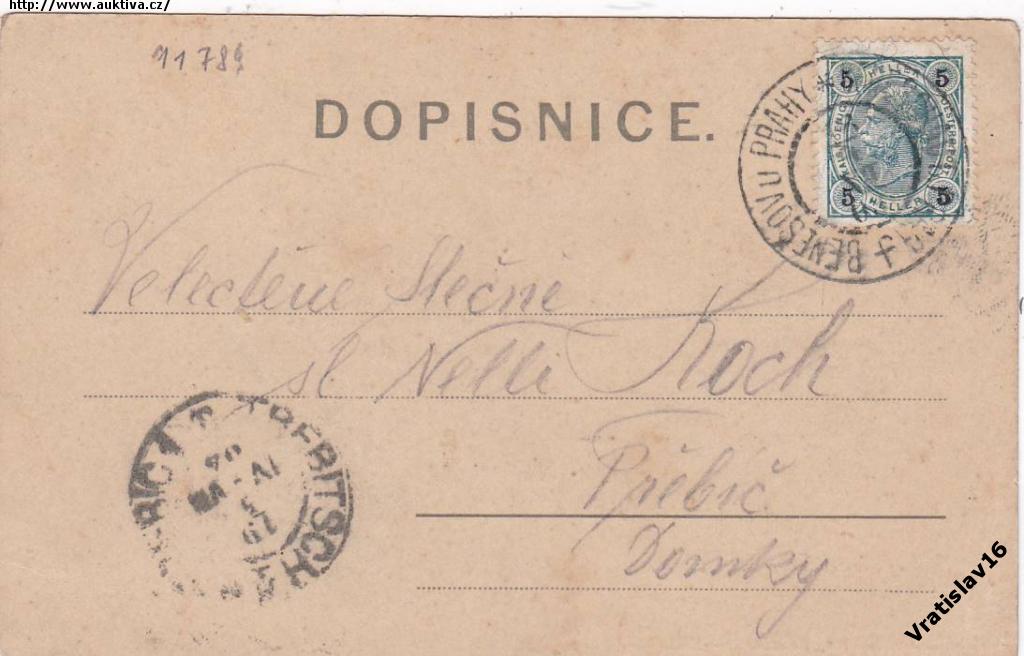 http://www.auktiva.cz/
11789
DOPISNICE.
5 HELLER 5
5 HELLER 5
BENEŠOV U PRAHY
Velectěné Slečně
sl Nelli Koch
TREBITSCH
Třebíč
Domky
Vratislav16